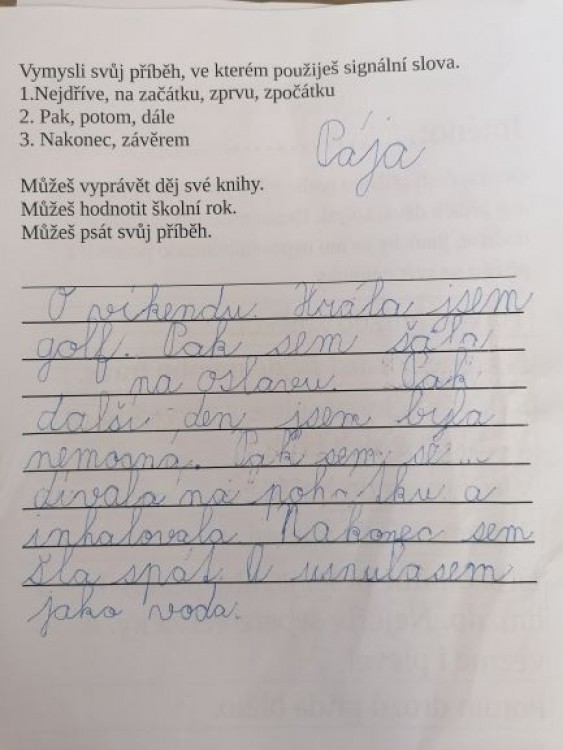 Vymysli svůj příběh, ve kterém použiješ signální slova.
1.Nejdříve, na začátku, zprvu, zpočátku
2. Pak, potom, dále
3. Nakonec, závěrem
Pája
Můžeš vyprávět děj své knihy.
Můžeš hodnotit školní rok.
Můžeš psát svůj příběh.
O víkendu. Hrála jsem
golf. Pak sem šála
na oslavu. Pak
další den jsem byla
nemocná. Pak sem sě
dívala na pohádku a
inhalovala. Nakonec sem
šla spát. A usnulasem
jako voda.